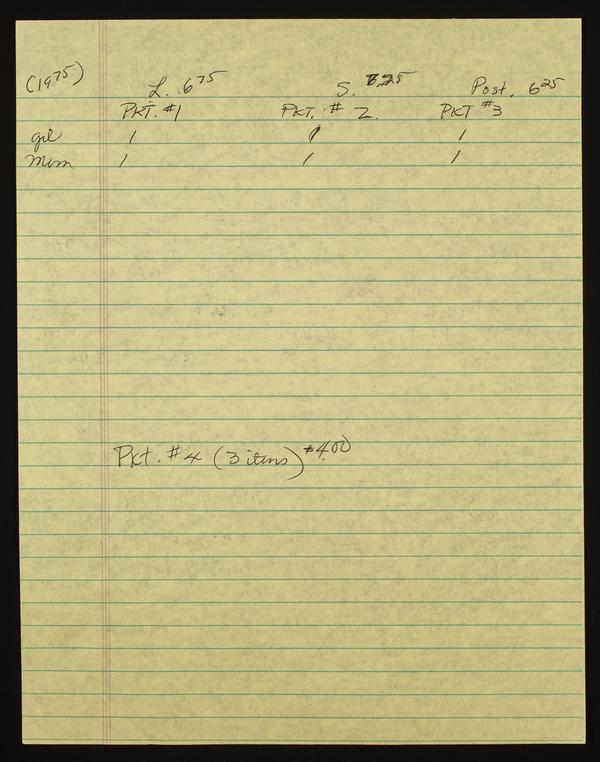 (1975) L. 6 75 S. 25 Post. 6 25
PKT. #1 PKT. # 2. PKT #3
/ / /
Mom / / /
Pkt. #4 (3 items) $4.00